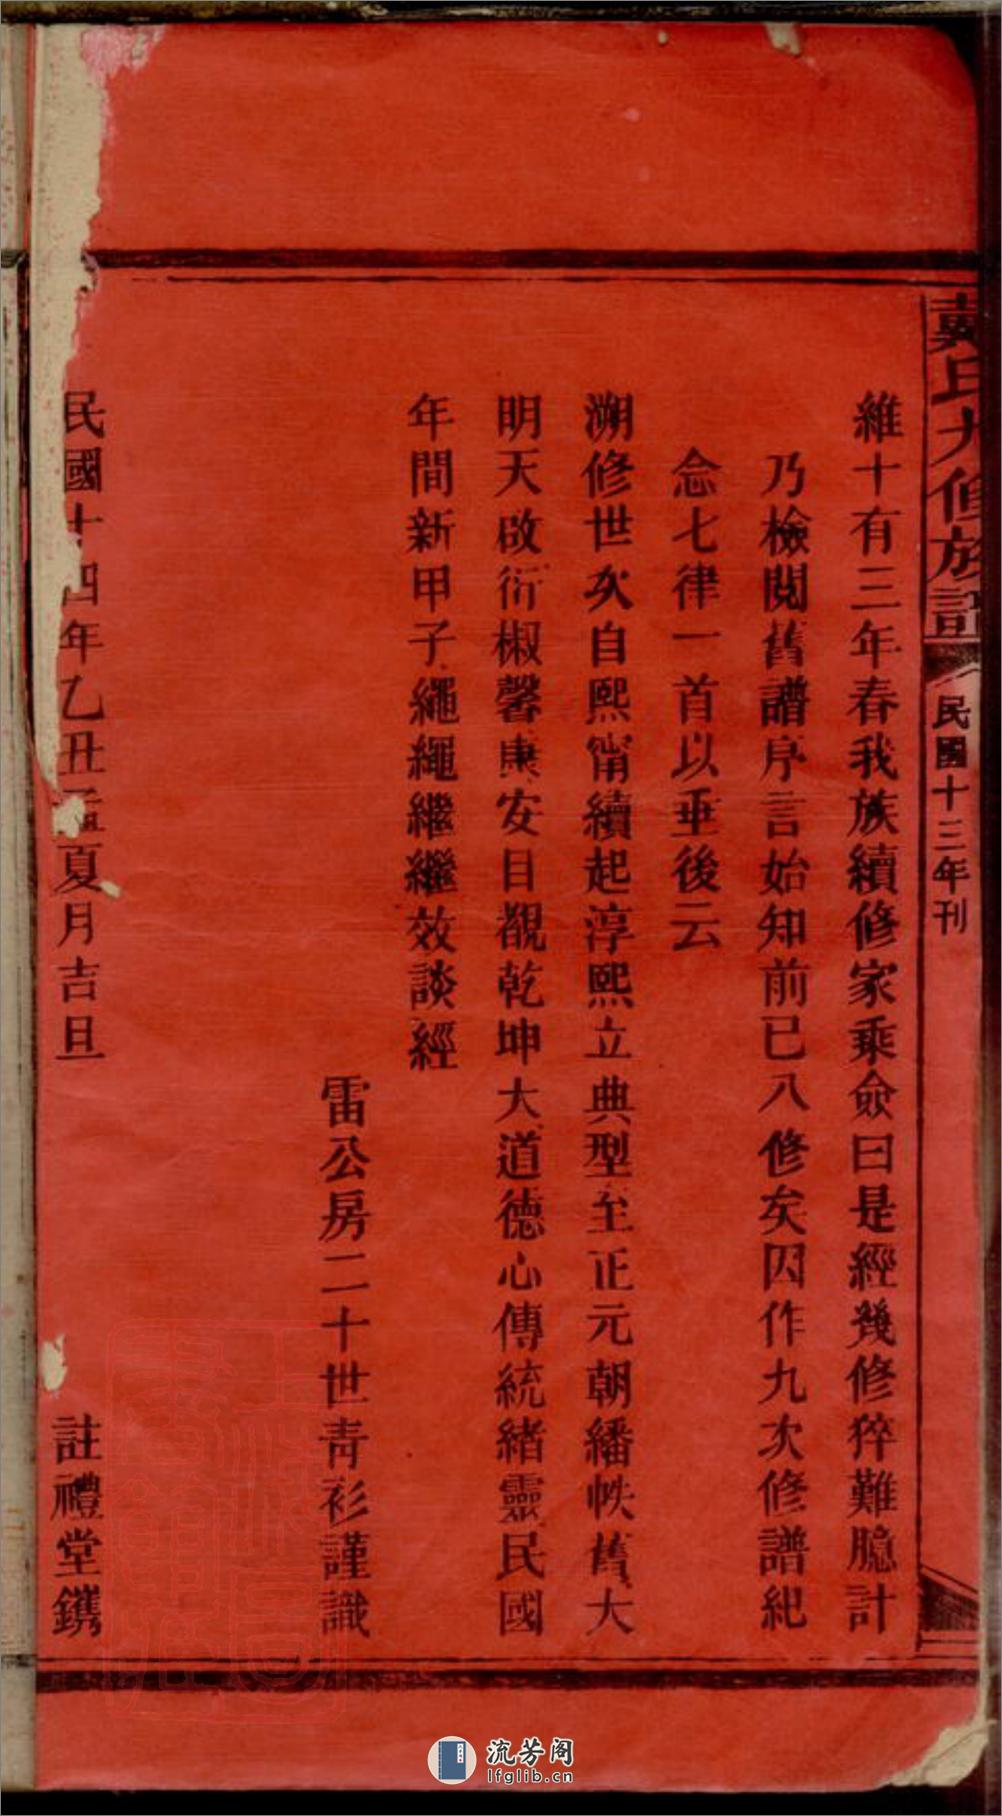 戴氏九修族譜
民國十三年刊
維十有三年春我族續修家乘僉曰是經幾修猝難臆計
乃檢閱舊譜序言始知前已八修矣因作九次修譜紀
念七律一首以垂後云
溯修世次自熙甯續起淳熙立典型至正元朝繙帙舊大
明天啟衍椒馨康安目覩乾坤大道德心傳統緒靈民國
年間新甲子繩繩繼繼效談經
雷公房二十世青衫謹識
民國十四年乙丑孟夏月吉旦
註禮堂鐫
流芳阁
lfglib.cn